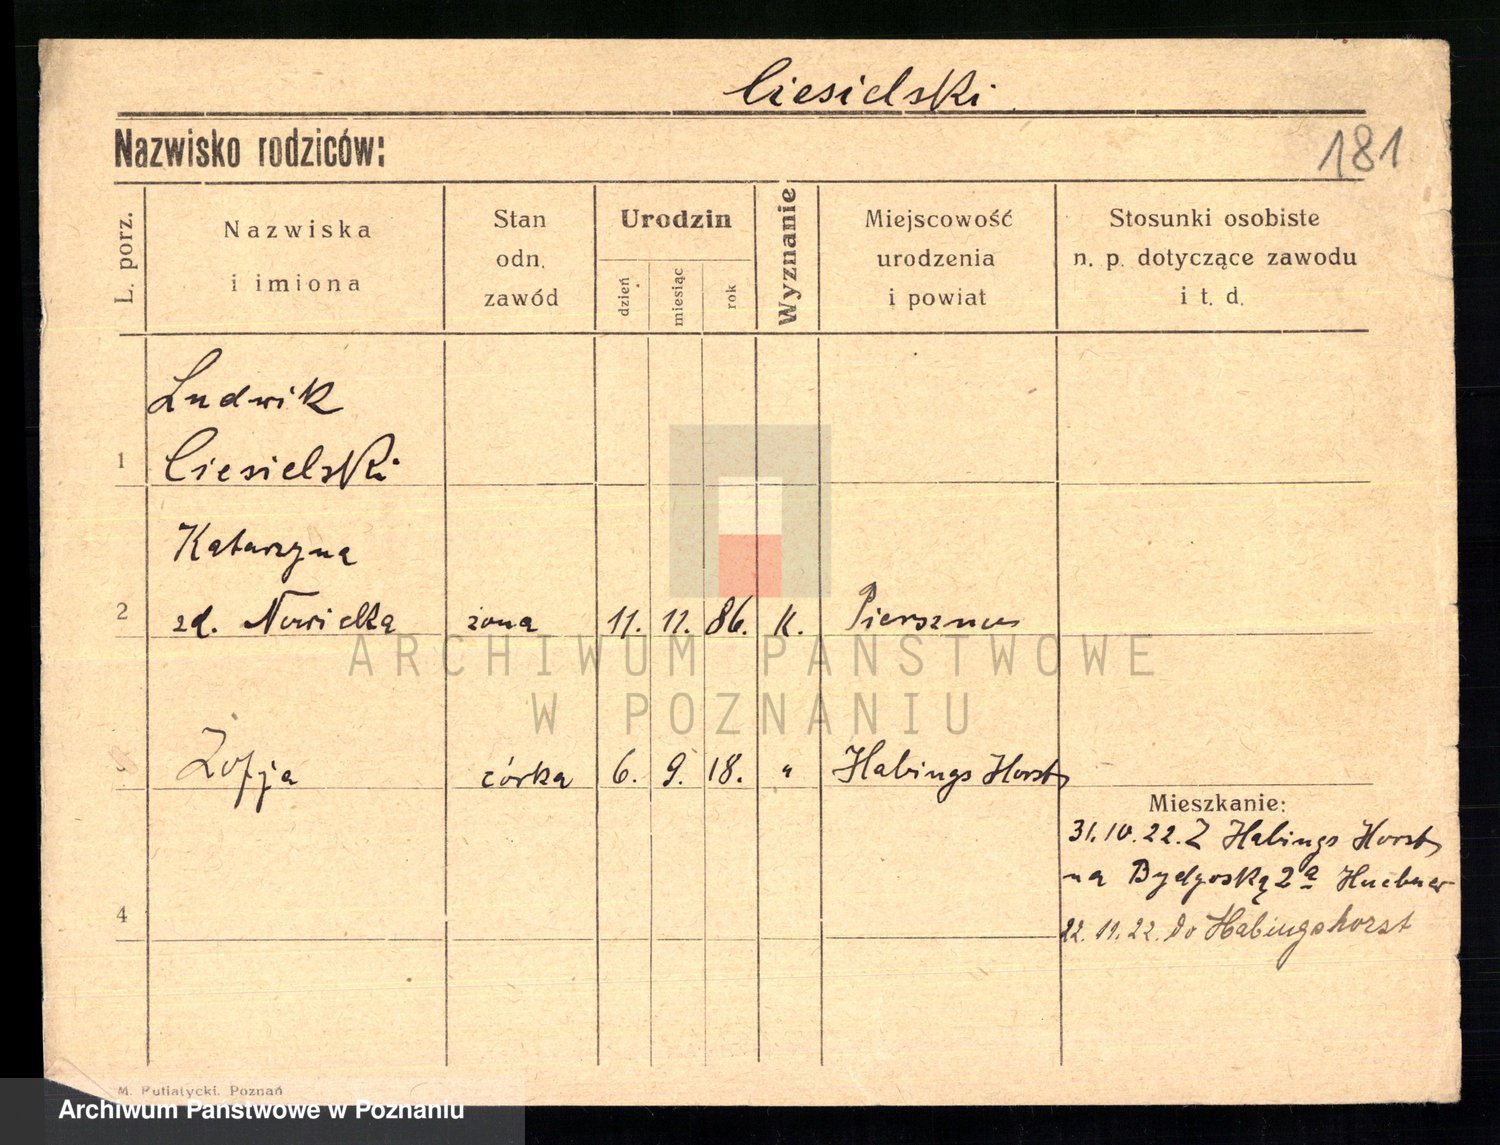 Ciesielski
Nazwisko rodziców:
181
L. porz.
Nazwiska
i imiona
Stan
odn.
zawód
Urodzin
dzień
miesiąc
rok
Wyznanie
Miejscowość
urodzenia
i powiat
Stosunki osobiste
n. p. dotyczące zawodu
i t. d.
Ludwik
1 Ciesielski
Katarzyna
2 zd. Nowicka żona 11. 11. 86. K.
Zofja córka 6. 9. 18. " Habings Horst
Mieszkanie:
31. 10. 22. Z Habings Horst
na Bydgoską 2a Huebner
4
22. 11. 22. do Habingshorst
ARCHIWUM PAŃSTWOWE
W POZNANIU
M. Putiatycki. Poznań
Archiwum Państwowe w Poznaniu